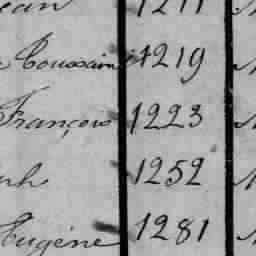 ean 1211
Toussain 1219
François 1223
ph 1252
Eugène 1281